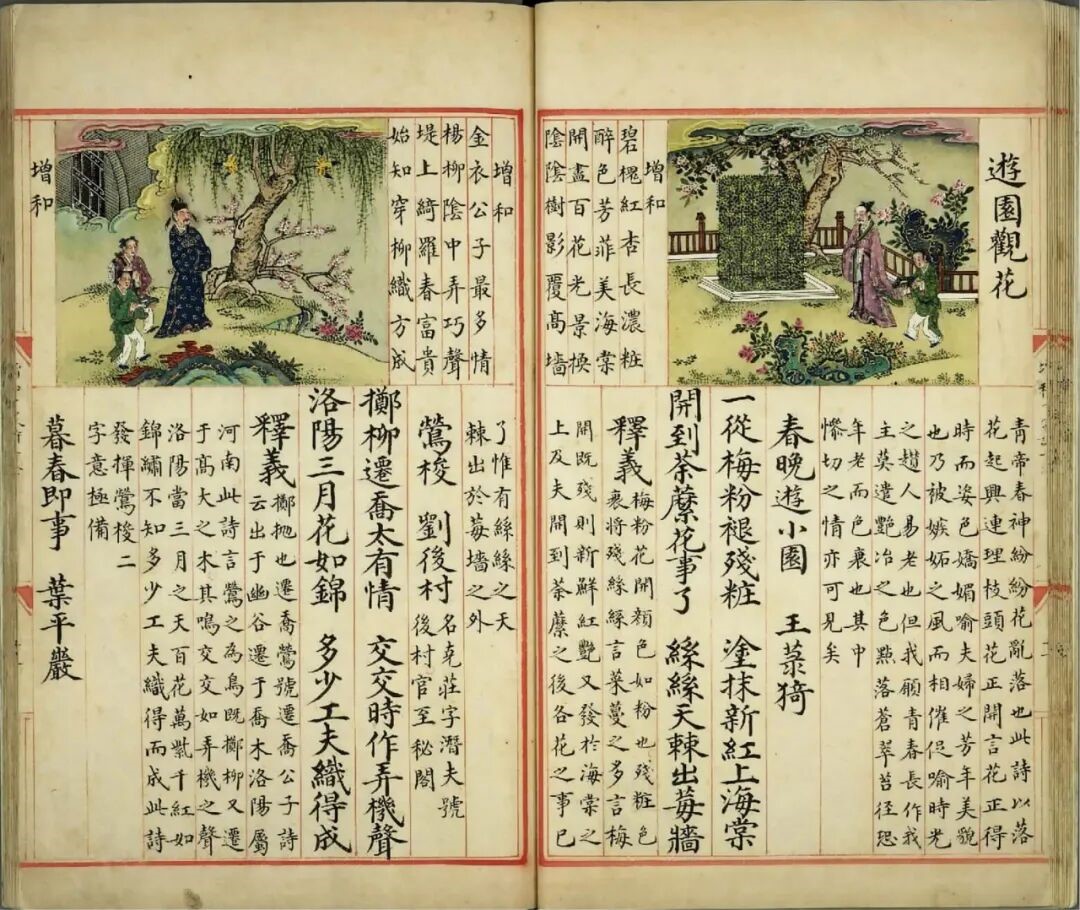 遊園觀花
增和
碧槐紅杏長濃粧
醉色芳菲美海棠
開盡百花光景換
陰陰樹影覆高墻
青帝春神紛紛花亂落也此詩以落
花起興連理枝頭花正開言花正得
時而姿色嬌媚喻夫婦之芳年美貌
也乃被嫉妬之風雨相催促喻時光
之趲人易老也但我願青春長作我
主莫遣艷冶之色點落蒼翠苔徑恐
年老而色衰也其中
慘切之情亦可見矣
春晚遊小園 王菉猗
一從梅粉褪殘粧 塗抹新紅上海棠
開到荼蘼花事了 絲絲天棘出莓牆
釋義 梅粉花開顏色如粉也殘粧色
衰將殘絲絲言菜蔓之多言梅
開既殘則新鮮紅艷又發於海棠之
上及夫開到荼蘼之後各花之事已
增和
金衣公子最多情
楊柳陰中弄巧聲
堤上綺羅春富貴
始知穿柳織方成
增和
了惟有絲絲之天
棘出於莓墻之外
鶯梭 劉後村 名克莊字潛夫號
後村官至秘閣
擲柳遷喬太有情 交交時作弄機聲
洛陽三月花如錦 多少工夫織得成
釋義 擲拋也遷喬鶯號遷喬公子詩
云出于幽谷遷于喬木洛陽屬
河南此詩言鶯之為鳥既擲柳又遷
于高大之木其鳴交交如弄機之聲
洛陽當三月之天百花萬紫千紅如
錦繡不知多少工夫織得而成此詩
發揮鶯梭二
字意極備
暮春即事 葉平巖